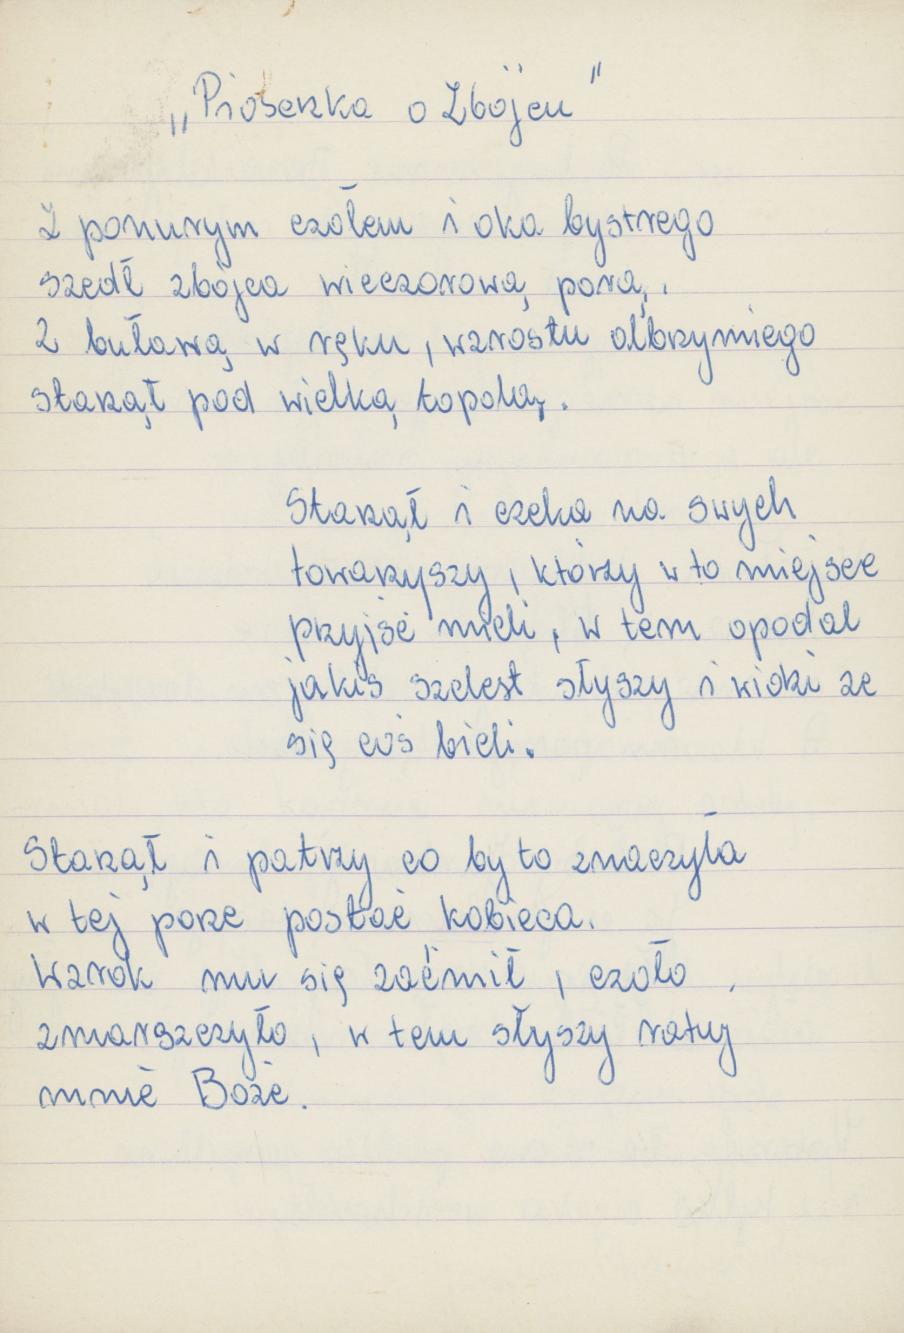 „Piosenka o Zbójcu"
Z ponurym czołem i oka bystrego
szedł zbójca wieczorową porą.
Z buławą w ręku, wzrostu olbrzymiego
stanął pod wielką topolą.
Stanął i czeka na swych
towarzyszy, którzy w to miejsce
przyjść mieli, w tem opodal
jakiś szelest słyszy i widzi ze
się coś bieli.
Stanął i patrzy co by to znaczyła
w tej porze postać kobieca.
Wzrok mu się zaćmił, czoło
zmarszczyło, w tem słyszy ratuj
mnie Boże.